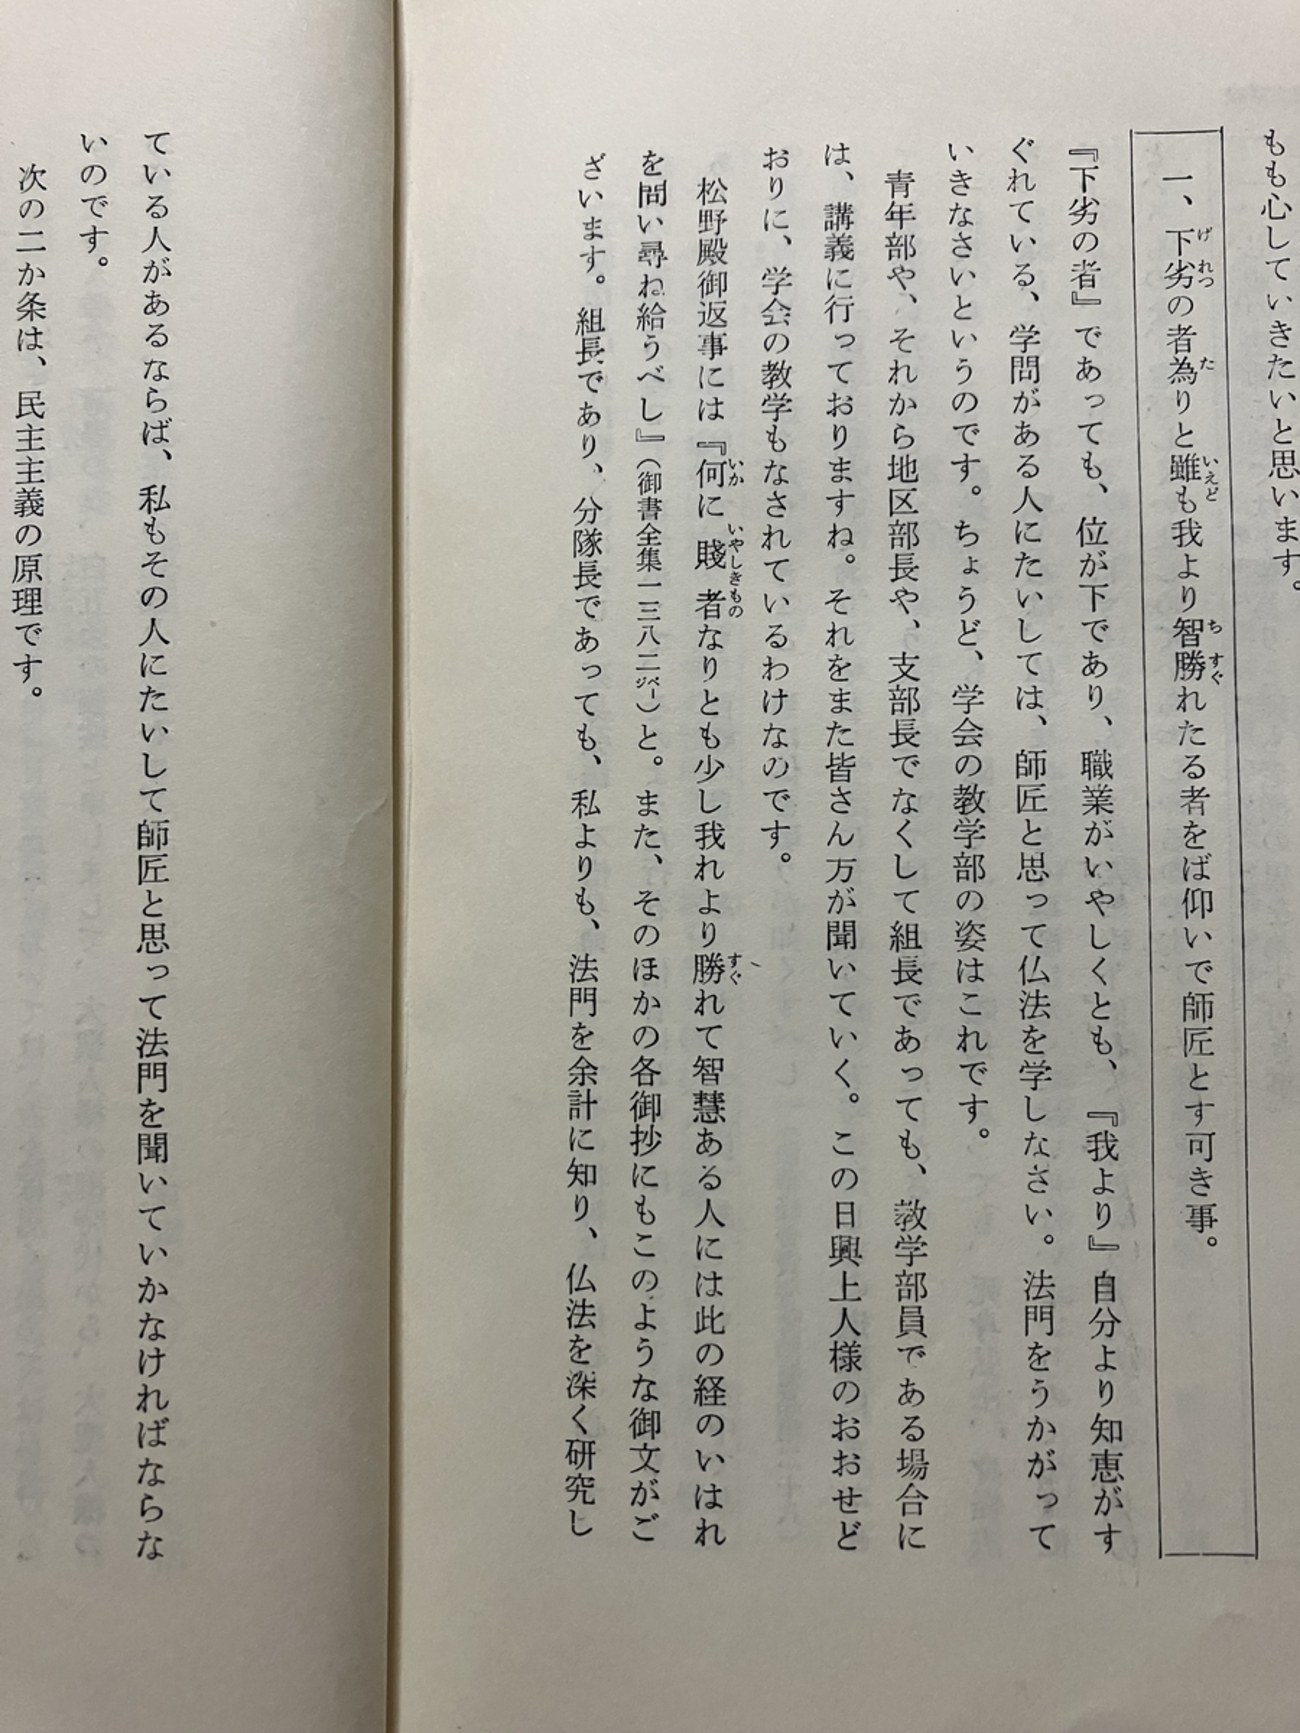 もも心していきたいと思います。
一、下劣の者為りと雖も我より智勝れたる者をば仰いで師匠とす可き事。
『下劣の者』であっても、位が下であり、職業がいやしくとも、『我より』自分より知恵がす
ぐれている、学問がある人にたいしては、師匠と思って仏法を学しなさい。法門をうかがって
いきなさいというのです。ちょうど、学会の教学部の姿はこれです。
青年部や、それから地区部長や、支部長でなくして組長であっても、教学部員である場合に
は、講義に行っておりますね。それをまた皆さん方が聞いていく。この日興上人様のおおせど
おりに、学会の教学もなされているわけなのです。
松野殿御返事には『何に賤者なりとも少し我れより勝れて智慧ある人には此の経のいはれ
を問い尋ね給うべし』（御書全集一三八二㌻）と。また、そのほかの各御抄にもこのような御文がご
ざいます。組長であり、分隊長であっても、私よりも、法門を余計に知り、仏法を深く研究し
ている人があるならば、私もその人にたいして師匠と思って法門を聞いていかなければならな
いのです。
次の二か条は、民主主義の原理です。